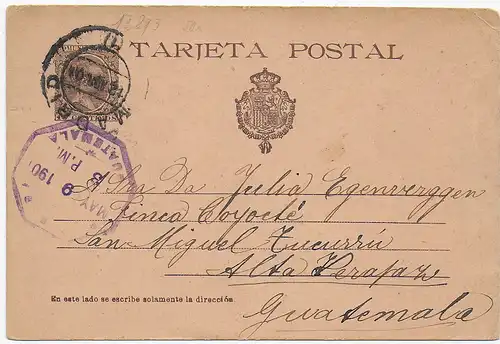 TARJETA POSTAL
MADRID
GUATEMALA
P.M.
8
MAY 9 190
A Sra Da Julia Egenverggen
Finca Coyocté
San Miguel Tucurrú
Alta Verapaz
En este lado se escribe solamente la dirección.
Guatemala